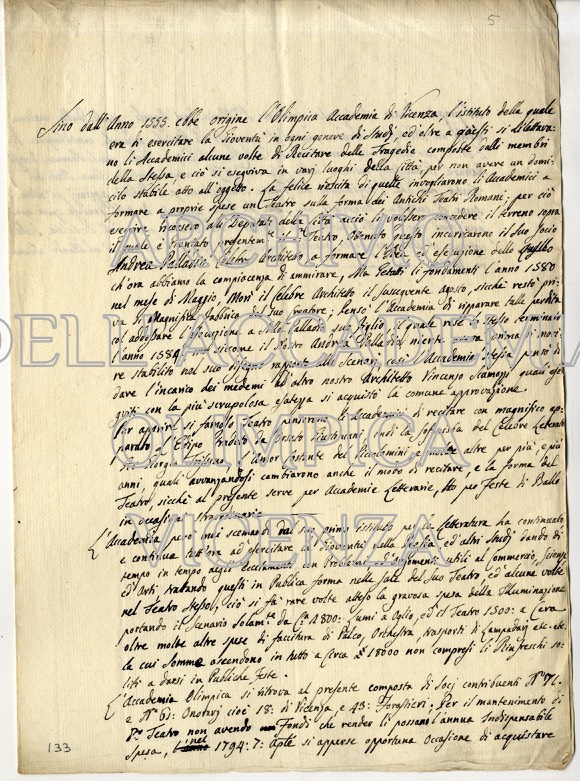 5
Sino dall'Anno 1555 ebbe origine l'Olimpica Accademia di Vicenza, l'istituto della quale
era di esercitare la Gioventù in ogni genere di Studj, ed oltre a questi si dilettava-
no li Academici alcune volte di Recitare delle Tragedie composte dalli membri
della Stessa e ciò si eseguiva in varj luoghi della Città, per non avere un domi-
cilio stabile atto all'oggetto. La felice riescita di quelle invogliarono li Academici a
formare a proprie spese un Teatro sulla forma dei Antichi Teatri Romani, per ciò
eseguire ricorsero alli Deputati della Città acciò li volessero concedere il terreno sopra
il quale è piantato il Teatro. Ottenuto questo incaricarono il Suo Socio
Andrea Palladio Celebre Architetto a formare l'Idea, ed esecuzione dello quello
ch'ora abbiamo la compiacenza di ammirare, Ma gettati li fondamenti l'anno 1580
nel mese di Maggio, Morì il Celebre Architetto il susseguente Agosto, sichè restò pri-
va si Magnifica fabbrica del suo creatore; Pensò l'Academia di riparare tale perdita
coll'addossare l'Esecuzione a Silla Palladio suo figlio, il quale rese lo stesso terminato
l'anno 1584, siccome il Nostro Andrea Palladio niente aveva prima di mori-
re stabilito nel suo disegno rapporto alle Scene, così l'Academia Stessa pensò di
dare l'incarico dei medemi ad altro nostro Architetto Vincenzo Scamozzi quali ese-
guiti con la più scrupolosa esatezza si acquistò la comune approvazione.
Per apprire si famoso Teatro pensarono li Academici di recitare con magnifico ap-
parato l'Edipo tradotto da Orsato Giustiniani, indi la Sofonisba del Celebre Letterato
Gio: Giorgio Trissino, l'Amor Costante del Piccolomini e molte altre per più, e più
anni, quali avvanzandosi cambiarono anche il modo di recitare, e la forma del
Teatro, sicchè al presente serve per Accademie Letterarie, per Feste di Ballo
in occasioni straordinarie.
L'Academia però mai scemando dal suo primo istituto per la Letteratura ha continuato
e continua tutt'ora ad esercitare la Gioventù nella Poesia ed altri Studj dando di
tempo in tempo agli Eccitamenti con Problemi ed Argomenti utili al Commercio, Scienze
ed Arti trattando questi in Publica forma nelle Sale del Suo Teatro, ed alcune volte
nel Teatro Stesso, ciò si fà rare volte atteso la gravosa spesa della Illuminazione
portando il Scenario Solam.te da C.a 800: Lumi a Oglio, ed il Teatro 1500: a Cera
oltre molte altre spese di facitura di Palco, Orchestra, trasporti di Lampadarj etc: etc:
le cui Somme ascendono in tutto a Circa 18000 non compresi li Rinfreschi so-
liti a darsi in Publiche feste.
L'Academia Olimpica si ritrova al presente composta di Socj contribuenti N.o 71:
e N.o 61: Onorarj cioè 18: di Vicenza, e 43: Forastieri. Per il mantenimento di
d.o Teatro non avendo Fondi che render li possano l'annua Indispensabile
Spesa, nel 1794: 7: Aple si apperse opportuna Occasione di acquistare
133
ARCHIVIO
DELL'ACCADEMIA
OLIMPICA
VICENZA